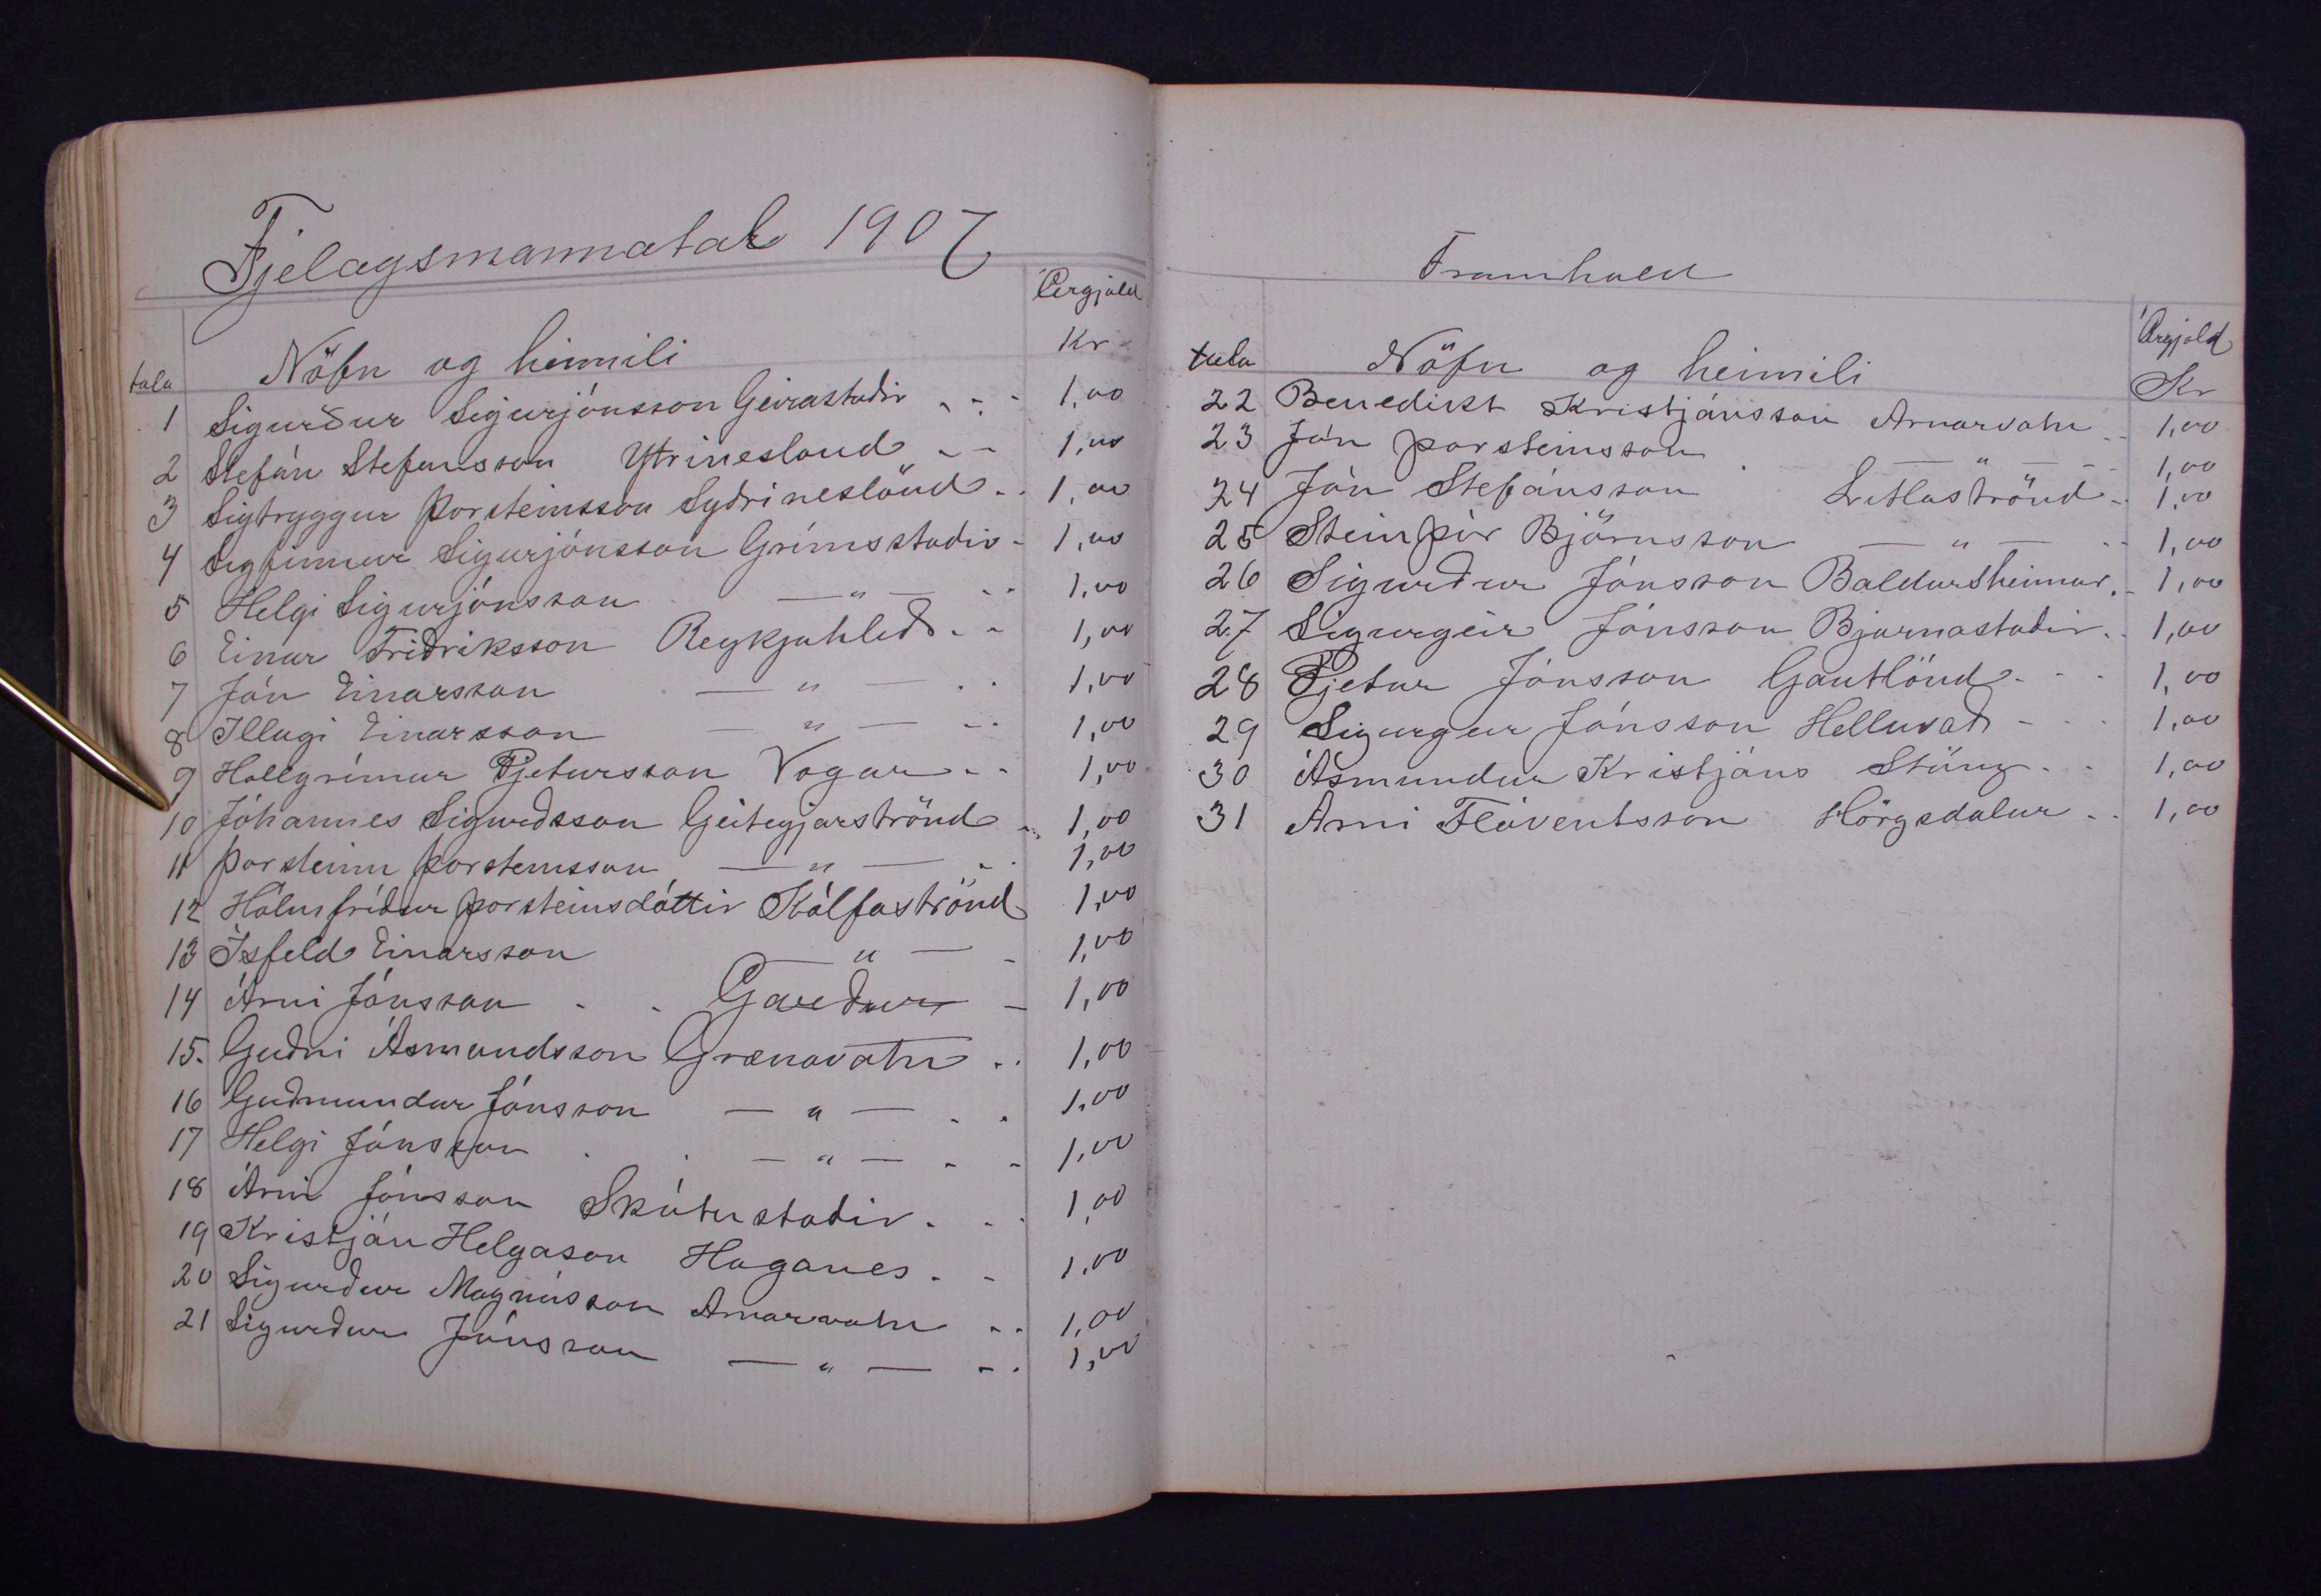 Fjelagsmannatal 1907
Árgjald
tala Nöfn og heimili Kr
1 Sigurður Sigurjónsson Geirastaðir - - - 1,00
2 Stefán Stefansson Ytrinesland - - 1,00
3 Sigtryggur Þorsteinsson Syðrineslönd . . 1,00
4 Sigfinnur Sigurjónsson Grímsstaðir - 1,00
5 Helgi Sigurjónsson — " — - - 1,00
6 Einar Friðriksson Reykjahlíð - - 1,00
7 Jón Einarsson — " — . . 1,00
8 Illugi Einarsson — " — - - 1,00
9 Hallgrímur Pjetursson Vogar - - 1,00
10 Jóhannes Sigurðsson Geitegjarströnd - 1,00
11 Þorsteinn Þorsteinsson — " — - . 1,00
12 Hólmfríður Þorsteinsdóttir Kálfaströnd 1,00
13 Ísfeld Einarsson — " — - 1,00
14 Árni Jónsson . . Garður - 1,00
15. Guðni Ásmundsson Grænavatn . . 1,00
16 Guðmundur Jónsson — " — . . 1,00
17 Helgi Jónsson . . — " — - - 1,00
18 Árni Jónsson Skútustaðir . . . 1,00
19 Kristján Helgason Haganes . - 1,00
20 Sigurður Magnússon Arnarvatn . . 1,00
21 Sigurður Jónsson — " — - . 1,00
Framhald
Árgjald
tala Nöfn og heimili Kr
22 Benedikt Kristjánsson Arnarvatn . . 1,00
23 Jón Þorsteinsson — " — - - 1,00
24 Jón Stefánsson . Litlaströnd - 1,00
25 Steinþór Björnsson — " — . . 1,00
26 Sigurður Jónsson Baldursheimur . - 1,00
27 Sigurgeir Jónsson Bjarnastaðir . . 1,00
28 Pjetur Jónsson Gautlönd - - . 1,00
29 Sigurgeir Jónsson Helluvað - - . 1,00
30 Ásmundur Kristjáns Stöng . . 1,00
31 Arni Flóventsson Hörgsdalur . . 1,00